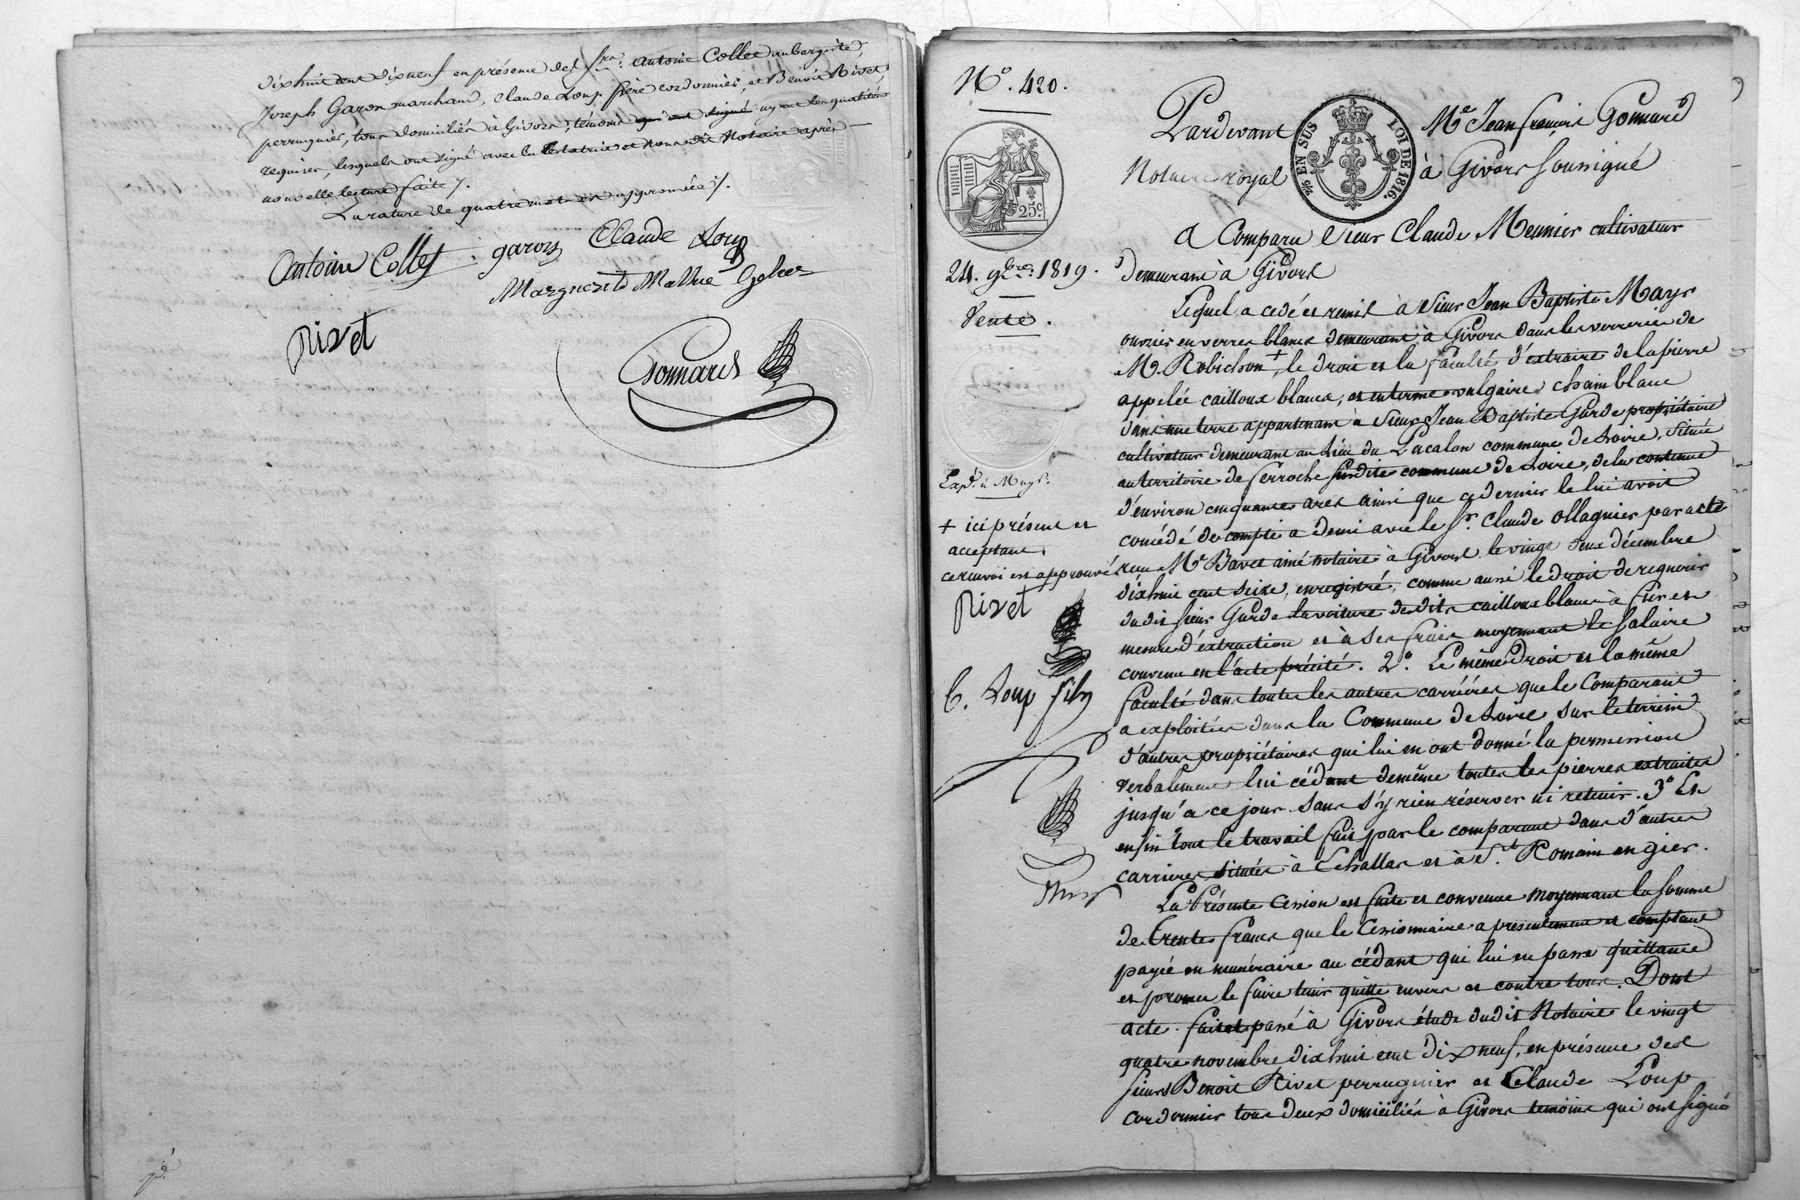 dixhuit cent dixneuf en présence des srs. Antoine Collet aubergiste,
Joseph Garon marchand, Claude Loup frère cordonnier, et Benoit Rivet
perruquier, tous domiciliés à Givors, témoins qui ont signé ayant les qualités
requises, lesquels ont signé avec la testatrice et nous dit Notaire après
nouvelle lecture faite /.
La rature de quatre mots est approuvée /.
Antoine Collet garon Claude Loup
Marguerite Mathie
Rivet
Gonnard
N° 420.
Pardevant Me Jean françois Gonnard
Notaire royal à Givors soussigné
EN SUS LOI DE 1816.
25c
a Comparu Sieur Claude Meunier cultivateur
24. 9bre. 1819.
demeurant à Givors
Vente.
Lequel a cedé et remis à Sieur Jean Baptiste Mayr
ouvrier en verres blancs demeurant à Givors dans les verreries de
M. Robichon +, le droit et la faculté d'extraire de la pierre
appelée cailloux blancs, et en terme vulgaire chaimblanc
dans une terre appartenant à Sieur Jean Baptiste Garde propriétaire
cultivateur demeurant au Lieu du Pacalon commune de Loire, située
au territoire de ferroche susdite commune de Loire, de la contenue
d'environ cinquante ares ainsi que ce dernier le lui avoit
concédé de compte a demi avec le sr. Claude Ollagnier par acte
reçu Me Bavet ainé notaire à Givors le vingt deux décembre
dixhuit cent seize, enregistré, comme aussi le droit de requerir
dudit sieur Garde la voiture desdits cailloux blancs à fur et
mesure d'extraction et à ses frais moyennant le salaire
convenu en l'acte précité. 2° Le même droit et la même
faculté dans toutes les autres carrières que le Comparant
a exploitées dans la Commune de Loire sur le terrein
d'autres propriétaires qui lui en ont donné la permission
verbalement lui cédant de même toutes les pierres extraites
jusqu'a ce jour sans s'y rien réserver ni retenir. 3° Et
enfin tout le travail fait par le comparant dans d'autres
carrieres situées à Echallas et à St Romain en gier.
La Présente Cession est faite et convenue moyennant la somme
de trente francs que le Cessionnaire a présentement et comptant
payée en numéraire au cédant qui lui en passe quittance
et promet le faire tenir quitte envers et contre tous. Dont
acte. fait et passé à Givors étude dudit Notaire le vingt
quatre novembre dixhuit cent dixneuf, en présence des
sieurs Benoit Rivet perruquier et Claude Loup
cordonnier tous deux domiciliés à Givors témoins qui ont signé
Expd. à Mayr.
+ ici présent et
acceptant
ce renvoi est approuvé
Rivet
C. Loup fils